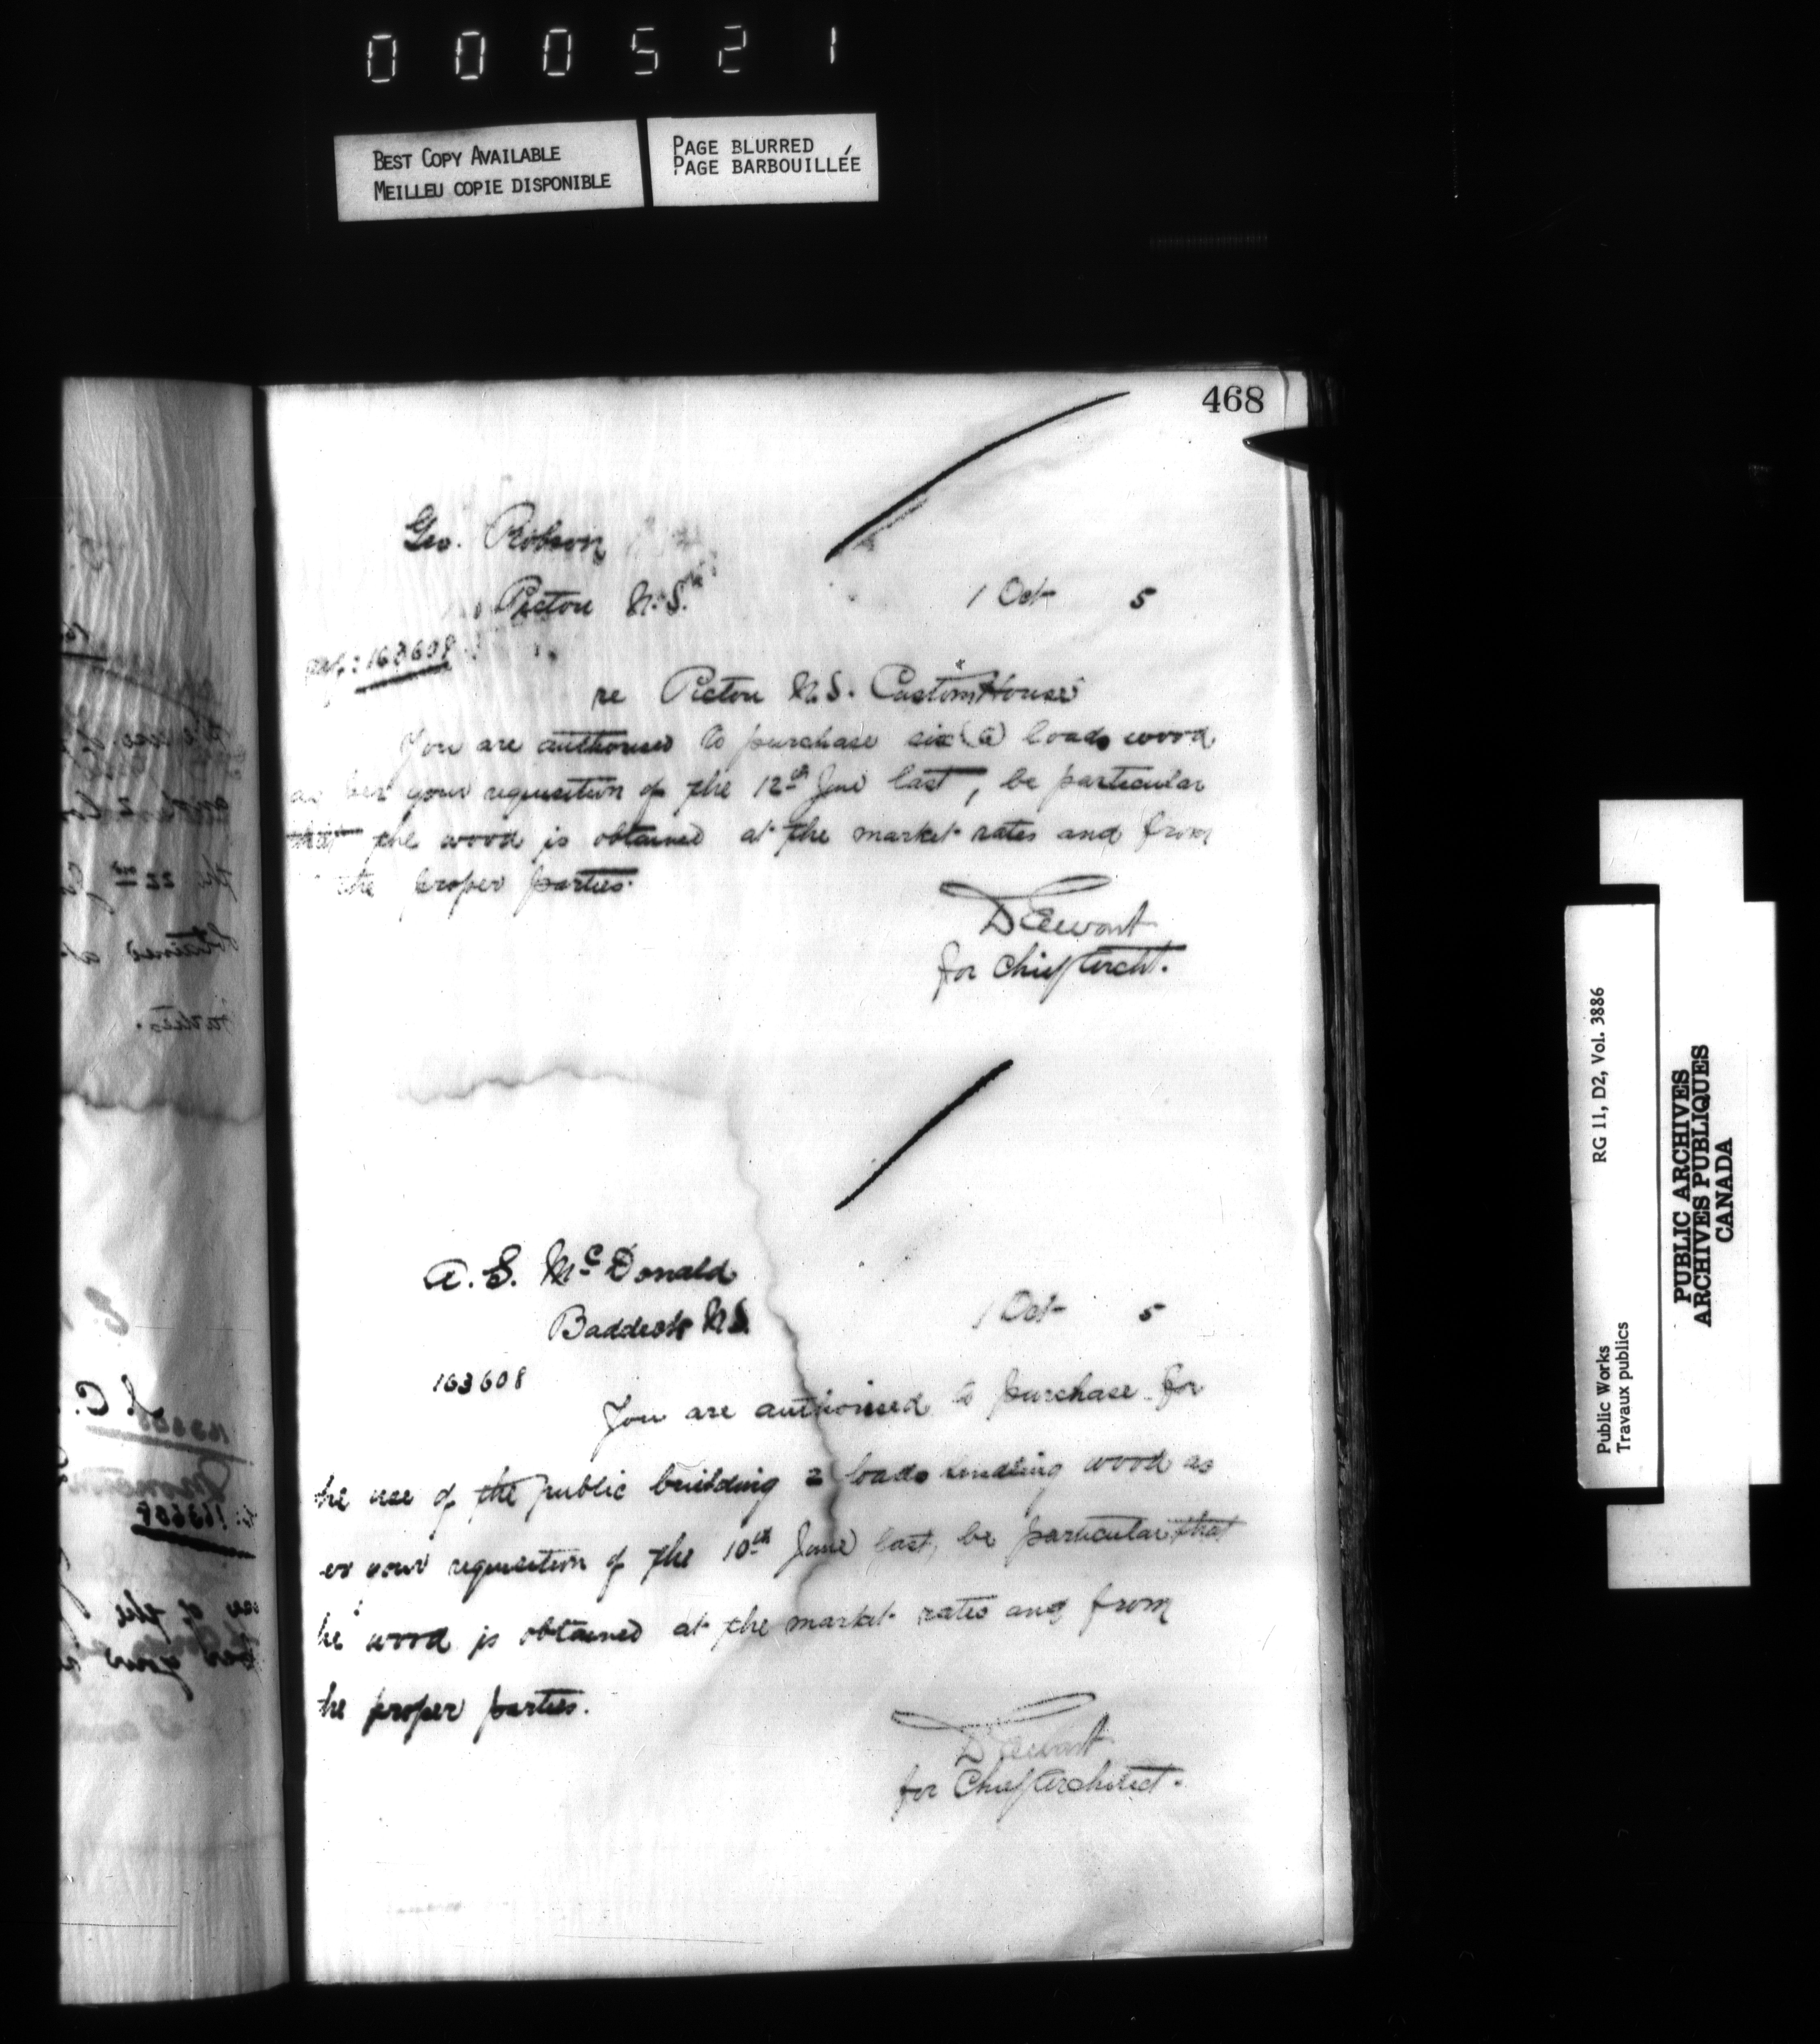 000521
BEST COPY AVAILABLE
MEILLEU COPIE DISPONIBLE
PAGE BLURRED
PAGE BARBOUILLÉE
468
Geo. Robson
Pictou N.S.
1 Oct 5
Ref: 163608
re Pictou N.S. Custom House
You are authorised to purchase six (6) loads wood
as per your requisition of the 12th June last, be particular
that the wood is obtained at the market rates and from
the proper parties.
D Ewart
for Chief Archt.
A. S. McDonald
Baddeck N.S.
1 Oct 5
163608
You are authorised to purchase for
he use of the public building 2 loads kindling wood as
er your requisition of the 10th June last, be particular that
he wood is obtained at the market rates and from
he proper parties.
D Ewart
for Chief Architect.
Public Works
Travaux publics
RG 11, D2, Vol. 3886
PUBLIC ARCHIVES
ARCHIVES PUBLIQUES
CANADA